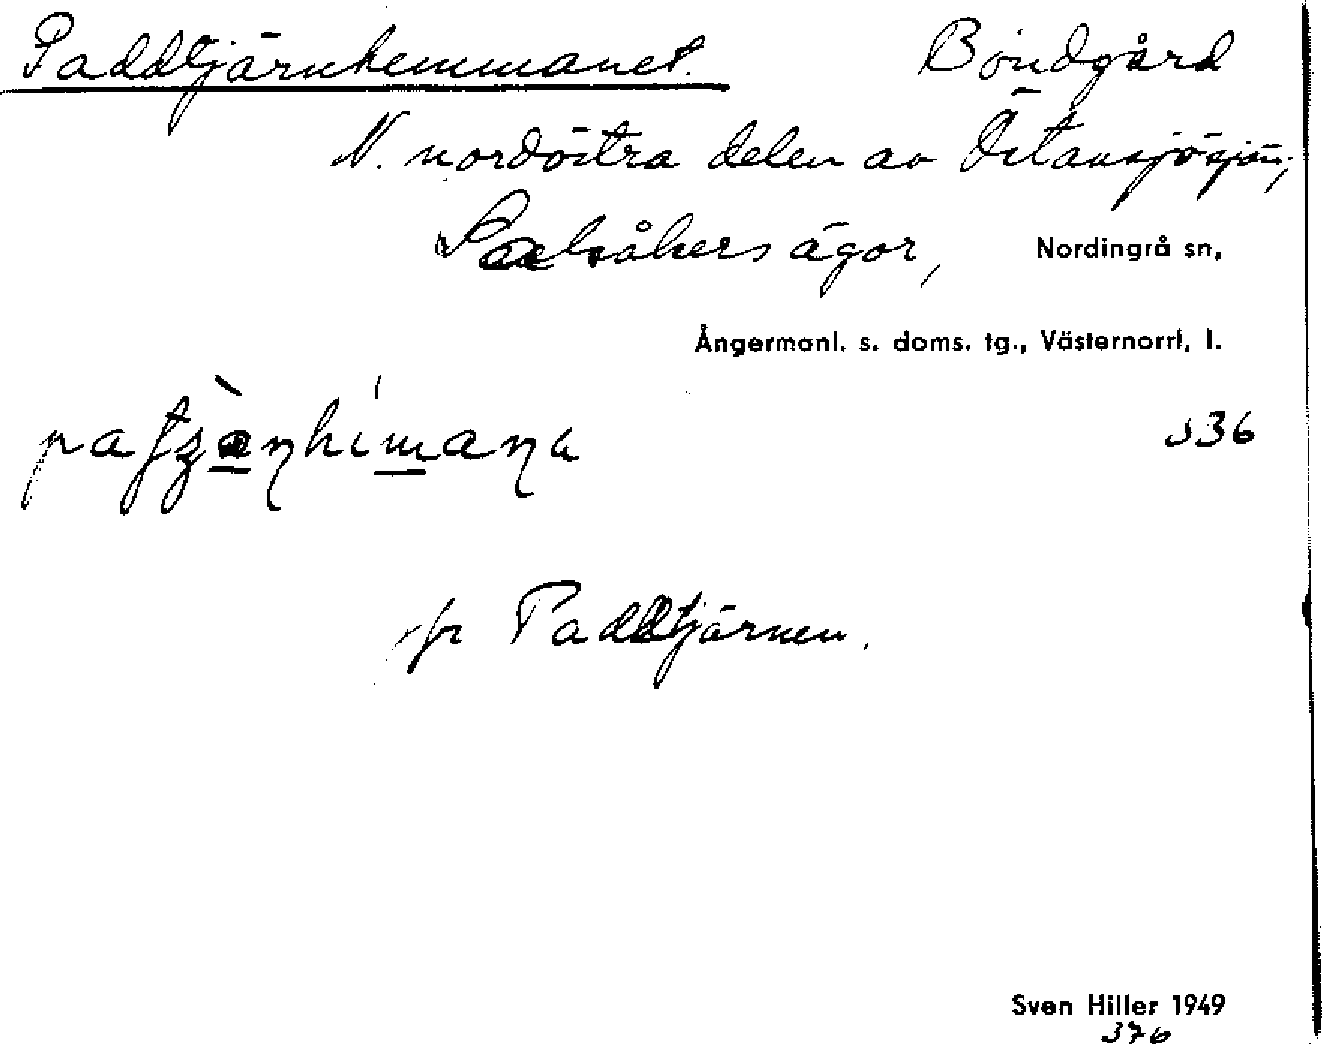 Paddtjärnhemmanet. Bondgård
N. nordöstra delen av Östansjösjön,
Salsåkers ägor, Nordingrå sn,
Ångermanl. s. doms. tg., Västernorrl. l.
336
jfr Paddtjärnen.
Sven Hiller 1949
376